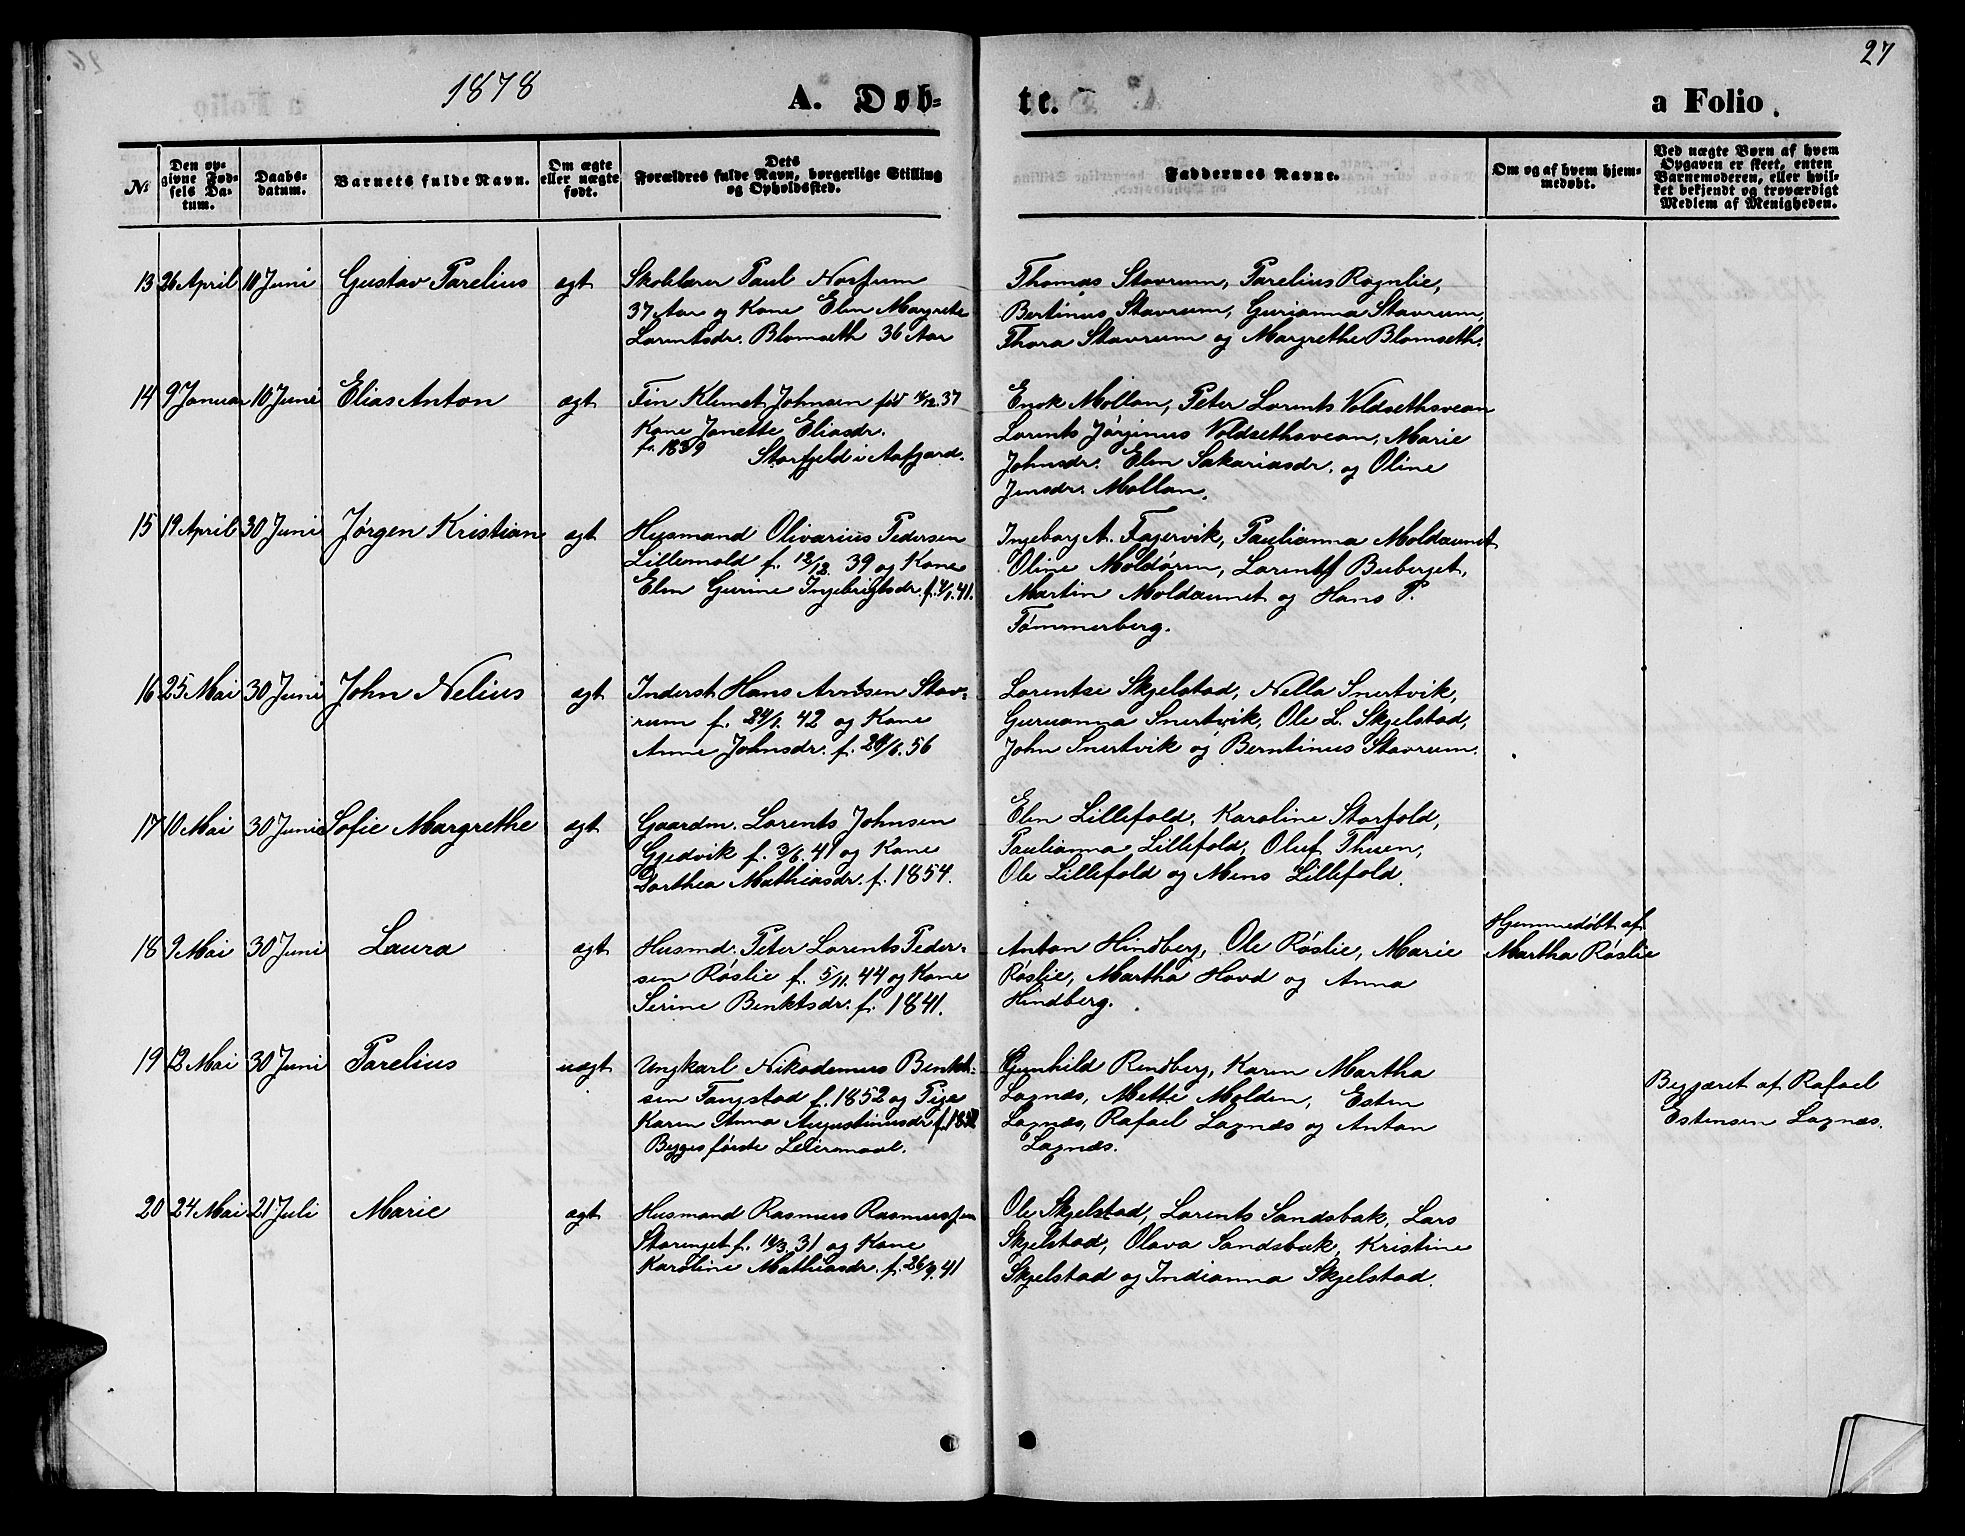 27
1878
A. Døb-
te.
a Folio.
№
Den opgivne Fødsels Datum.
Daabsdatum.
Barnets fulde Navn.
Om ægte eller uægte født.
Dets Forældres fulde Navn, borgerlige Stilling og Opholdssted.
Faddernes Navne.
Om og af hvem hjemmedøbt.
Ved uægte Børn af hvem Opgaven er skeet, enten Barnemoderen, eller hvilket bekjendt og troværdigt Medlem af Menigheden.
13 26 April 10 Juni Gustav Parelius ægt
Skolelærer Paul Norsum
37 Aar og Kone Elen Margrete
Lorentsdr. Blomseth 36 Aar
Thomas Stavrum, Parelius Rognlie,
Bertinus Stavrum, Gurianna Stavrum,
Thora Stavrum og Margrethe Blomseth.
14 9 Januar 10 Juni Elias Anton ægt
Fin Klemet Johnsen før 37
Kone Jonette Eliasdr.
f. 1839 Storfjeld i Aafjord.
Enok Mollan, Peter Lorents Voldsethsvean
Lorents Jørginus Voldsethsvean, Marie
Johnsdr. Elen Sakariasdr. og Oline
Jensdr. Mollan.
15 19 April 30 Juni Jørgen Kristian ægt
Husmand Olivarius Pedersen
Lillemold f. 12/12 39 og Kone
Elen Gurine Ingebrigtsdr. f. 4/1. 41.
Ingeborg A. Fagervik, Paulianna Moldaunet
Oline Moldøren, Lorents Buberget,
Martin Moldaunet og Hans P.
Tømmerberg.
16 25 Mai 30 Juni John Nelius ægt
Inderst Hans Arntsen Stav-
rum f. 24/1. 42 og Kone
Anne Johnsdr. f. 56
Lorentse Skjelstad, Nella Snertvik,
Guruanna Snertvik, Ole L. Skjelstad,
John Snertvik og Berntinus Stavrum.
17 10 Mai 30 Juni Sofie Margrethe ægt
Gaardm. Lorents Johnsen
Gjedvik f. 3/6. 41 og Kone
Dorthea Mathiasdr. f. 1854.
Elen Lillefold, Karoline Storfold,
Paulianna Lillefold, Oluf Thuen,
Ole Lillefold og Mens Lillefold.
18 9 Mai 30 Juni Laura ægt
Husmd. Peter Lorents Peder-
sen Røslie f. 5/11. 44 og Kone
Serine Benktsdr. f. 1841.
Anton Hindberg, Ole Røslie, Marie
Røslie, Martha Hovd og Anna
Hindberg.
Hjemmedøbt af
Martha Røslie
19 12 Mai 30 Juni Parelius uægt
Ungkarl Nikodemus Benkt-
sen Tangstad f. 1852 og Pige
Karen Anna Augustinusdr.
Begges første Leiermaal.
Gunhild Rindberg, Karen Martha
Laxnæs, Mette Molden, Esten
Laxnæs, Rafael Laxnæs og Anton
Laxnæs.
Begjæret af Rafael
Estensen Laxnæs.
20 24 Mai 21 Juli Marie ægt
Husmand Rasmus Rasmussen
Storenget f. 31 og Kone
Karoline Mathiasdr. f. 26/9. 41
Ole Skjelstad, Lorents Sandsbak, Lars
Skjelstad, Olava Sandsbak, Kristine
Skjelstad og Indianna Skjelstad.